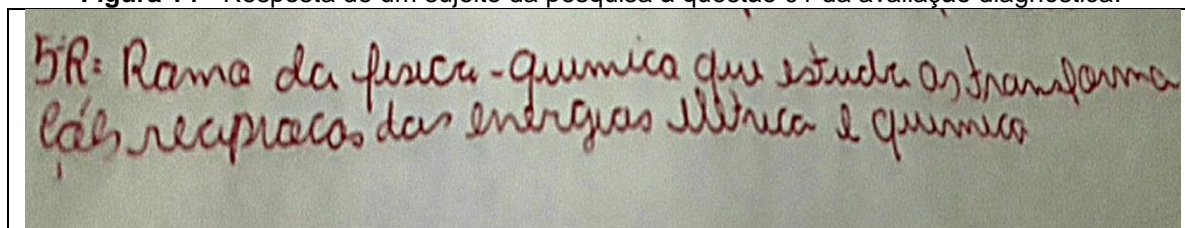 5R: Ramo da fisica-quimica que estuda as transforma
ções reciprocas das energias elétrica e quimica